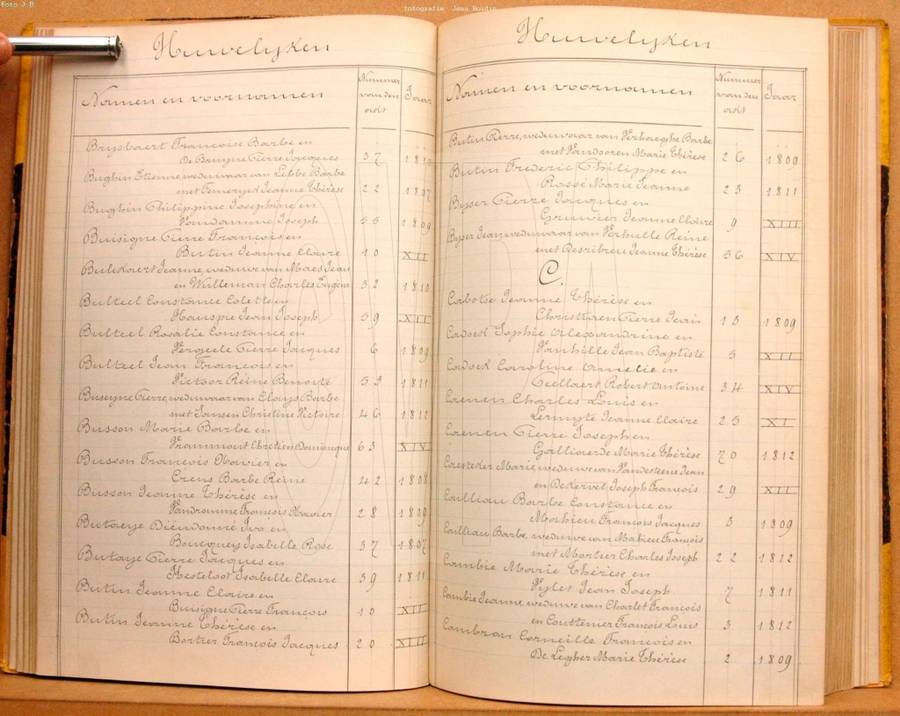 Foto J B
fotografie Jens Boudin
Huwelijken
Namen en voornamen
Nummer van den acte
Jaar
Brysbaert Françoise Barbe en
De Bougne Pierre Jacques 37
Bughin Etienne, weduwnaar van Libbe Barbe
met Temeryck Jeanne Thérèse 22 1807
Bughin Philippine Josephine en
Vandamme Joseph 55 1809
Buisigne Pierre François en
Butin Jeanne Claire 10 XII
Bulckaert Jeanne, weduwe van Maes Jean
en Wulleman Charles Eugène 32 1810
Bulteel Constance Colette en
Hauspie Jean Joseph 59 XII
Bulteel Rosalie Constance en
Vergeele Pierre Jacques 6 1809
Bulteel Jean François en
Victoor Reine Benoite 53 1811
Buseyne Pierre, weduwnaar van Elouys Barbe
met Jansen Christine Victoire 46 1812
Busson Marie Barbe en
Vrammout Chretien Dominique 63 XIV
Busson François Xavier en
Crens Barbe Reine 42 1808
Busson Jeanne Thérèse en
Vandromme François Xavier 28 1809
Butaeye Diéudonné Ivo en
Boucquey Isabelle Rose 37 1807
Butaye Pierre Jacques en
Hesteloot Isabelle Claire 39 1811
Butin Jeanne Claire en
Buisigne Pierre François 10 XII
Butin Jeanne Thérèse en
Bortier François Jacques 20 XIII
Huwelijken
Namen en voornamen
Nummer van den acte
Jaar
Butin Pierre, weduwnaar van Verhaeghe Barbe
met Vandooren Marie Thérèse 26 1809
Butin Frederic Philippe en
Rossé Marie Jeanne 23 1811
Byser Pierre Jacques en
Gruwier Jeanne Claire 9 XIII
Byser Jean, weduwnaar van Verhulle Reine
met Desribreu Jeanne Thérèse 36 XIV
C.
Cabotse Jeanne Thérèse en
Christiaen Pierre Jean 13 1809
Cadock Sophie Alexandrine en
Vanhille Jean Baptiste 5 XII
Cadock Caroline Amelie en
Geellaert Robert Antoine 34 XIV
Caenen Charles Louis en
Lermyte Jeanne Claire 25 XI
Caenen Pierre Joseph en
Galliaerde Marie Thérèse 70 1812
Caesteker Marie, weduwe van Vandesteene Jean
en Dekervel Joseph François 29 XII
Cailliau Barbe Constance en
Mahieu François Jacques 3 1809
Cailliau Barbe, weduwe van Mahieu François
met Mortier Charles Joseph 22 1812
Cambie Marie Thérèse en
Vylet Jean Joseph 7 1811
Cambie Jeanne, weduwe van Charlet François
en Couttenier François Louis 3 1812
Cambran Corneille François en
De Legher Marie Thérèse 2 1809